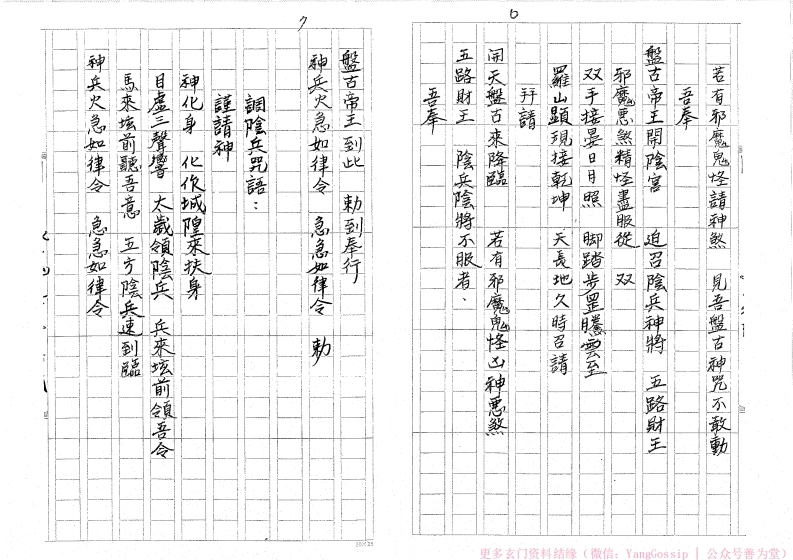 6
若有邪魔鬼怪請神煞 見吾盤古神咒不敢動
吾奉
盤古帝王開陰宮 迫召陰兵神將 五路財王
邪魔惡煞精怪盡服從 双
双手接晏日月照 脚踏步罡騰雲至
羅山顕現接乾坤 天長地久時召請
拜請
開天盤古來降臨 若有邪魔鬼怪凶神惡煞
五路財王 陰兵陰將不服者、
吾奉
7
盤古帝王到此 勅到奉行
神兵火急如律令 急急如律令 勅
調陰兵咒語：
謹請神
神化身 化作城隍來扶身
目虛三聲響 太歲領陰兵 兵來坛前領吾令
馬來坛前聽吾意 五方陰兵速到臨
神兵火急如律令 急急如律令
更多玄门资料结缘（微信：YangGossip | 公众号善为堂）